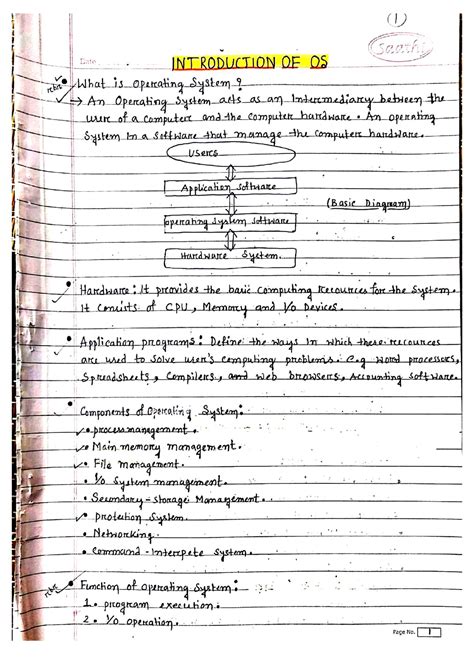 (1)
Saathi
Date
INTRODUCTION OF OS
What is Operating System ?
→ An Operating System acts as an Intermediary between the
user of a computer and the computer hardware. An operating
System is a Software that manage the computer hardware.
Users
Application software
(Basic Diagram)
operating System Software
Hardware System.
• Hardware : It provides the basic computing Resources for the System.
It consists of CPU, Memory and I/O Devices.
• Application programs : Define the ways in which these resources
are used to solve user's computing problems : e.g word processors,
Spreadsheets, Compilers, and web browsers, Accounting software.
• Components of Operating System :
• process management.
• Main memory management.
• File management.
• I/O System management.
• Secondary - storage Management.
• protection System.
• Networking.
• Command - Interpete System.
• Function of Operating System :
1. program execution.
2. I/O operation.
Page No. 1